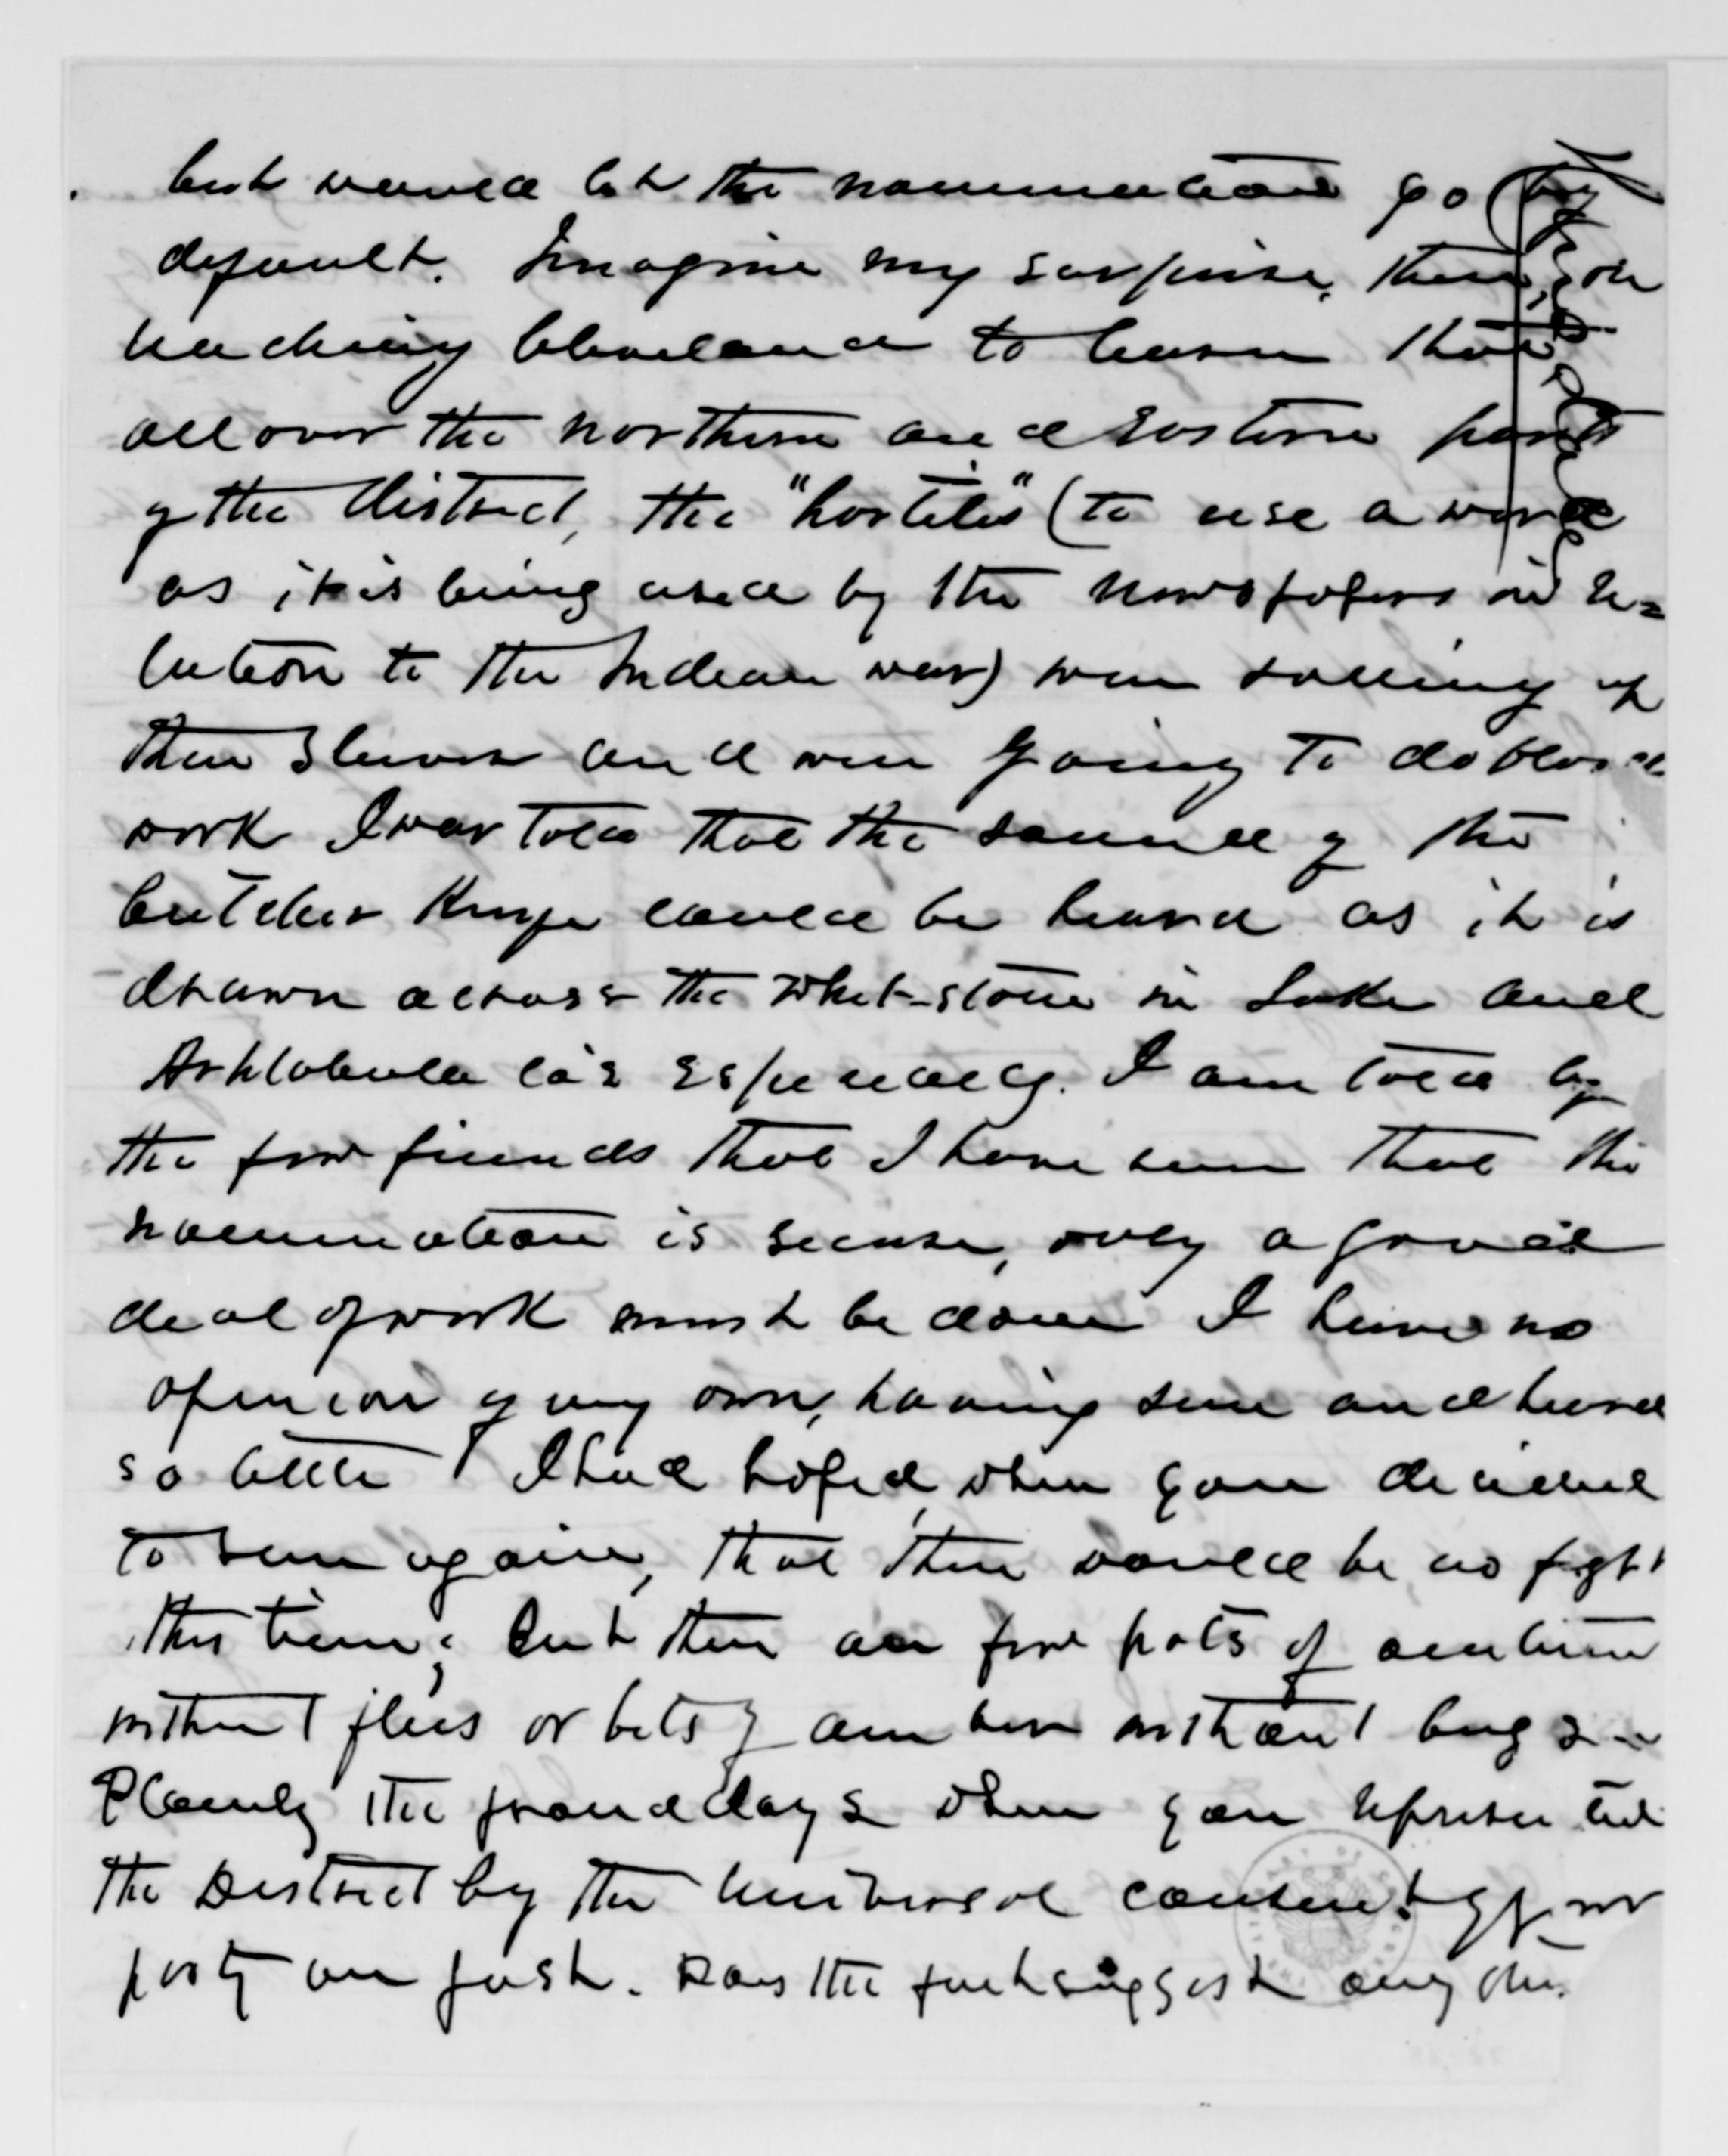 but would let the nomination go by
default. Imagine my surprise, then, on
reaching Cleveland to learn that
all over the northern and eastern parts
of the District, the "hostiles" (to use a word
as it is being used by the newspapers in re=
lation to the Indian war) were rolling up
their sleeves and were going to do bloody
work I was told that the sound of the
butcher knife could be heard as it is
drawn across the whet-stone in Lake and
Ashtabula Co's especially. I am told by
the few friends that I have seen that the
nomination is secure, only a good
deal of work must be done I have no
opinion of my own, having seen and heard
so little I had hoped, when you decided
to run again, that there would be no fight
this time; but there are few pots of ointment
without flies or bits of amber without bugs
Plainly the proud days when you represented
the District by the universal consent of your
party are past. Does the fact suggest any